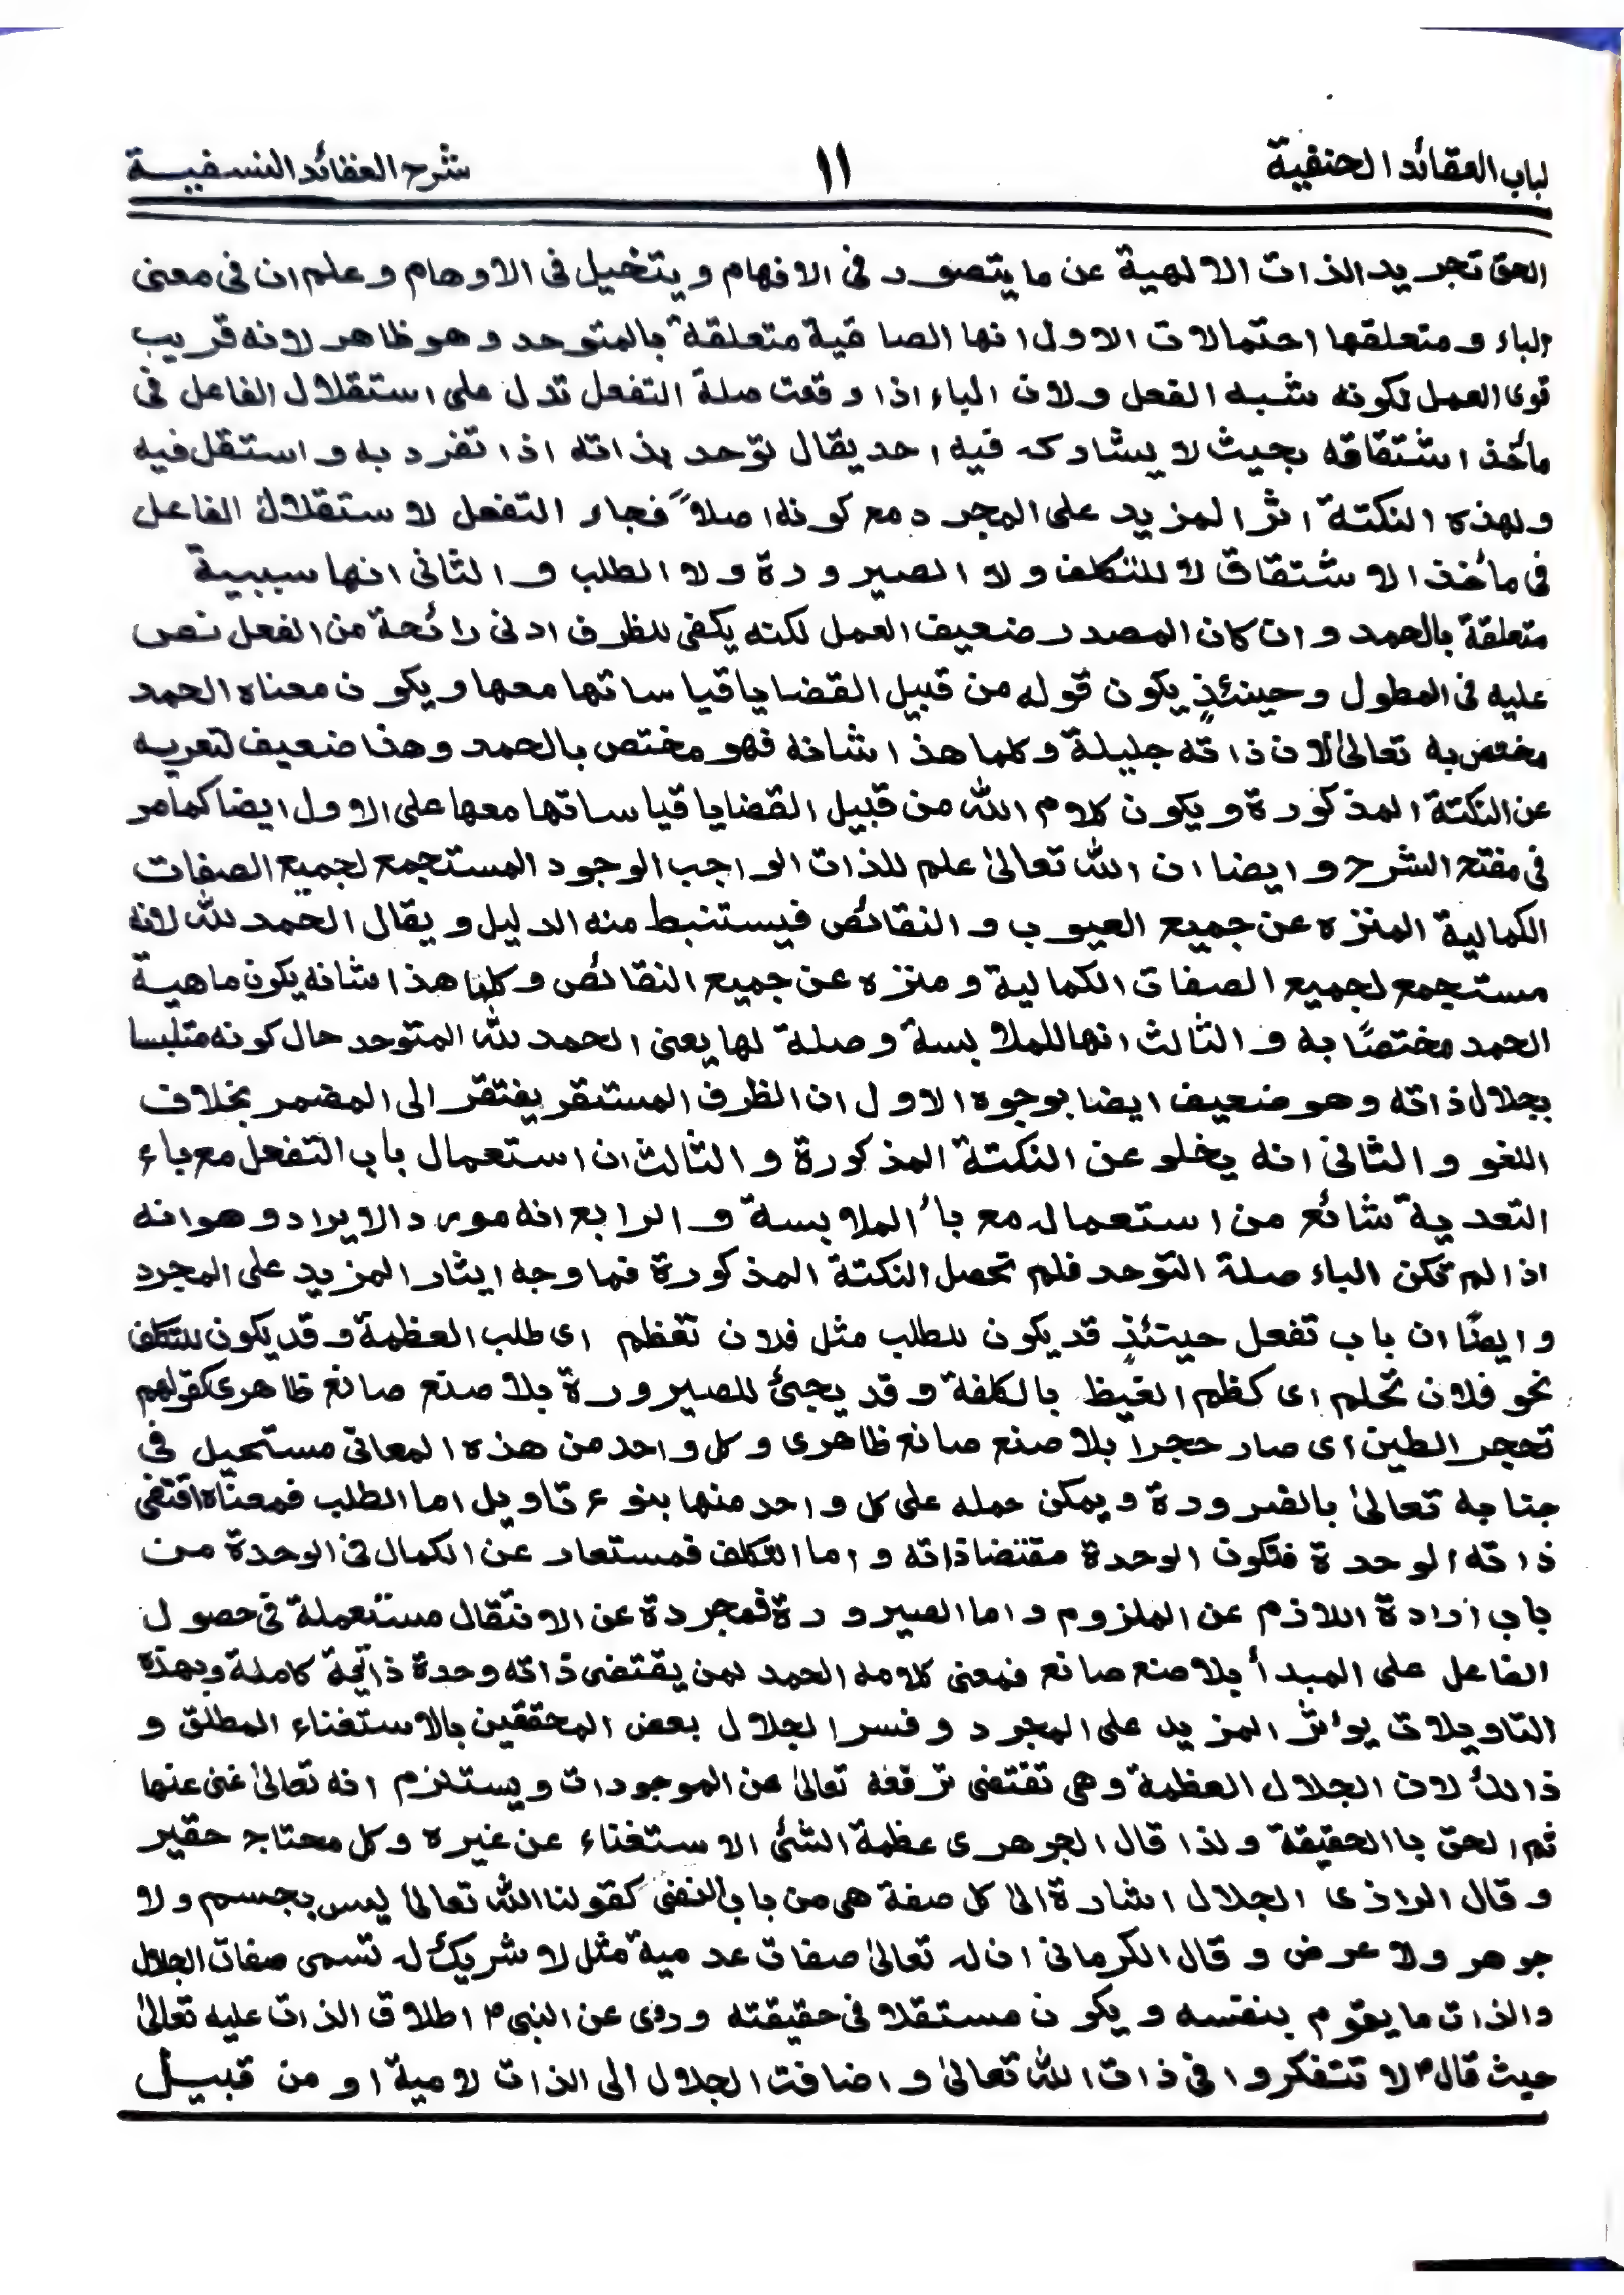 لباب العقائد الحنفية
١١
شرح العقائد النسفية
الحق تجريد الذات الالهية عن ما يتصور فى الافهام و يتخيل فى الاوهام و علم ان فى معنى
الباء و متعلقها احتمالات الاول انها الصاقية متعلقة بالمتوحد و هو ظاهر لانه قريب
قوى العمل لكونه شبه الفعل و لان الباء اذا وقعت صلة التفعل تدل على استقلال الفاعل فى
مأخذ اشتقاقه بحيث لا يشاركه فيه احد يقال توحد بذاته اذا تفرد به و استقل فيه
ولهذه النكتة اثر المزيد على المجرد مع كونه اصلاً فجاء التفعل لاستقلال الفاعل
فى مأخذ الاشتقاق لا للتكلف ولا الصيرورة ولا الطلب و الثانى انها سببية
متعلقة بالحمد و ان كان المصدر ضعيف العمل لكنه يكفى للظرف ادنى رائحة من الفعل نص
عليه فى المطول و حينئذٍ يكون قوله من قبيل القضايا قياساتها معها و يكون معناه الحمد
مختص به تعالىٰ لان ذاته جليلة و كلما هذا شانه فهو مختص بالحمد و هذا ضعيف لتعريه
عن النكتة المذكورة و يكون كلام الله من قبيل القضايا قياساتها معها على الاول ايضا كما مر
فى مفتح الشرح و ايضا ان الله تعالىٰ علم للذات الواجب الوجود المستجمع لجميع الصفات
الكمالية المنزه عن جميع العيوب و النقائص فيستنبط منه الدليل و يقال الحمد لله لانه
مستجمع لجميع الصفات الكمالية و منزه عن جميع النقائص و كلما هذا شانه يكون ماهية
الحمد مختصًا به و الثالث انها للملابسة و صلة لها يعنى الحمد لله المتوحد حال كونه متلبسا
بجلال ذاته و هو ضعيف ايضا بوجوه الاول ان الظرف المستقر يفتقر الى المضمر بخلاف
اللغو و الثانى انه يخلو عن النكتة المذكورة و الثالث ان استعمال باب التفعل مع باء
التعدية شائع من استعماله مع باء الملابسة و الرابع انه مورد الايراد و هو انه
اذا لم تكن الباء صلة التوحد فلم تحصل النكتة المذكورة فما وجه ايثار المزيد على المجرد
و ايضًا ان باب تفعل حينئذٍ قد يكون للطلب مثل فلان تعظم اى طلب العظمة و قد يكون للتكلف
نحو فلان تحلم اى كظم الغيظ بالكلفة و قد يجئ للصيرورة بلا صنع صانع ظاهرى كقولهم
تحجر الطين اى صار حجرا بلا صنع صانع ظاهرى و كل واحد من هذه المعانى مستحيل فى
جنابه تعالىٰ بالضرورة و يمكن حمله على كل واحد منها بنوع تاويل اما الطلب فمعناه اقتضى
ذاته الوحدة فتكون الوحدة مقتضا ذاته و اما التكلف فمستعار عن الكمال فى الوحدة من
باب ارادة اللازم عن الملزوم و اما الصيرورة فمجردة عن الانتقال مستعملة فى حصول
الفاعل على المبدأ بلا صنع صانع فمعنى كلامه الحمد لمن يقتضى ذاته وحدة ذاتية كاملة وبهذه
التاويلات يوأثر المزيد على المجرد و فسر الجلال بعض المحققين بالاستغناء المطلق و
ذالك لان الجلال العظمة و هى تقتضى ترفعه تعالىٰ عن الموجودات و يستلزم انه تعالىٰ غنى عنها
ثم الحق باالحقيقة و لذا قال الجوهرى عظمة الشئ الاستغناء عن غيره و كل محتاج حقير
و قال الرازى الجلال اشارة الىٰ كل صفة هى من باب النفى كقولنا الله تعالىٰ ليس بجسم و لا
جوهر و لا عرض و قال الكرمانى ان له تعالىٰ صفات عدمية مثل لا شريك له تسمى صفات الجلال
والذات ما يقوم بنفسه و يكون مستقلا فى حقيقته و روى عن النبى ؐ اطلاق الذات عليه تعالىٰ
حيث قال ؐ لا تتفكروا فى ذات الله تعالىٰ و اضافت الجلال الى الذات لامية او من قبيل